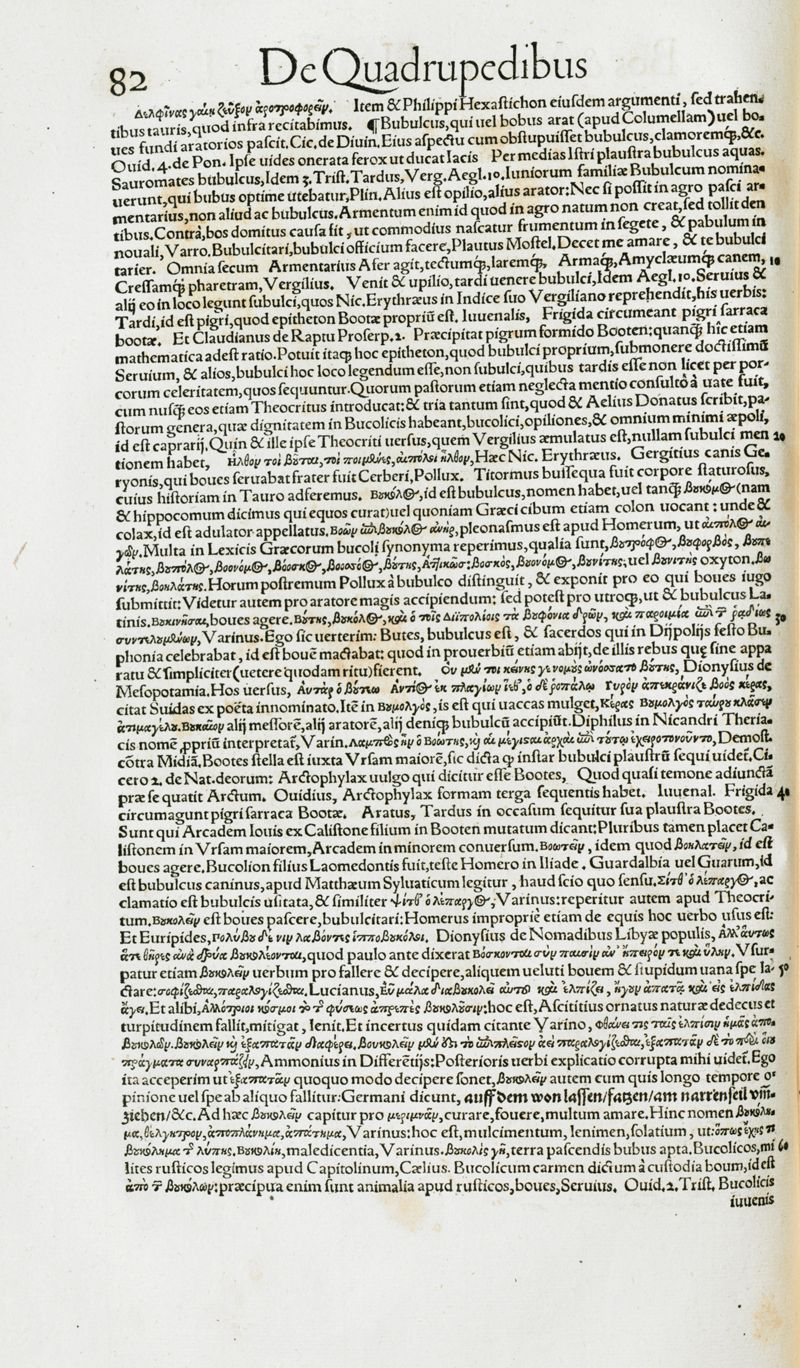 82 De Quadrupedibus
Δελφῖνας γαίῃ ζεῦξον ἀροτροφορεῖν. Item & Philippi Hexastichon eiusdem argumenti, sed trahen⸗
tibus tauris, quod infra recitabimus. ¶ Bubulcus, qui uel bobus arat (apud Columellam) uel bo⸗
ues fundi aratorios pascit. Cic. de Diuin. Eius aspectu cum obstupuisset bubulcus, clamoremq́;, &c.
Ouid. 4. de Pon. Ipse uides onerata ferox ut ducat Iacis Per medias Istri plaustra bubulcus aquas.
Sauromates bubulcus, Idem 3. Trist. Tardus, Verg. Aegl. 10. Iuniorum familiæ Bubulcum nomina⸗
uerunt, qui bubus optime utebatur, Plin. Alius est opilio, alius arator: Nec si possit in agro pasci ar⸗
mentarius, non aliud ac bubulcus. Armentum enim id quod in agro natum non creat, sed tollit den
tibus. Contrà, bos domitus causa fit, ut commodius nascatur frumentum in segete, & pabulum in
nouali, Varro. Bubulcitari, bubulci officium facere, Plautus Mostel. Decet me amare, & te bubulci
tarier. Omnia secum Armentarius Afer agit, tectumq́;, laremq́;, Armaq́;, Amyclæumq́; canem, 10
Cressamq́; pharetram, Vergilius. Venit & upilio, tardi uenere bubulci, Idem Aegl. 10. Seruius &
alij eo in loco legunt subulci, quos Nic. Erythræus in Indice suo Vergiliano reprehendit, his uerbis:
Tardi, id est pigri, quod epitheton Bootæ propriũ est. Iuuenalis, Frigida circumeant pigri sarraca
bootæ. Et Claudianus de Raptu Proserp. 2. Præcipitat pigrum formido Booten: quanq̃ hic etiam
mathematica adest ratio. Potuit itaq́; hoc epitheton, quod bubulci proprium, submonere doctissimũ
Seruium, & alios, bubulci hoc loco legendum esse, non subulci, quibus tardis esse non licet per por⸗
corum celeritatem, quos sequuntur. Quorum pastorum etiam neglecta mentio consultò a uate fuit,
cum nusq̃ eos etiam Theocritus introducat: & tria tantum sint, quod & Aelius Donatus scribit, pa⸗
storum genera, quæ dignitatem in Bucolicis habeant, bucolici, opiliones, & omnium minimi æpoli,
id est caprarij. Quin & ille ipse Theocriti uersus, quem Vergilius æmulatus est, nullam subulci men 20
tionem habet, Ηλθον τοὶ βῶται, τοὶ ποιμένες, αἰπόλοι ἦλθον, Hæc Nic. Erythræus. Gergitius canis Ge⸗
ryonis, qui boues seruabat frater fuit Cerberi, Pollux. Titormus bussequa fuit corpore staturosus,
cuius historiam in Tauro adferemus. Βουκόλος, id est bubulcus, nomen habet, uel tanq̃ βουκόμος (nam
& hippocomum dicimus qui equos curat) uel quoniam Græci cibum etiam colon uocant: unde &
colax, id est adulator appellatus. Βοῶν ἐπιβουκόλος ἀνήρ, pleonasmus est apud Homerum, ut αἰπόλος αἰ⸗
γῶν. Multa in Lexicis Græcorum bucoli synonyma reperimus, qualia sunt, βουτρόφος, βουφορβὸς, βουπε
λάτης, βουπόλος, βοονόμος, βόοσκος, βοοσσόος, βούτης, Ἀττικῶς: βοσκὸς, βουνόμος, βουνίτης, uel βουνιτὴς oxyton. βω
νίτης, βοηλάτης. Horum postremum Pollux à bubulco distinguit, & exponit pro eo qui boues iugo
submittit: Videtur autem pro aratore magis accipiendum: sed potest pro utroq́;, ut & bubulcus La⸗
tinis. βουκινῆσαι, boues agere. Βούτης, βουκόλος, καὶ ὁ τοῖς Διϊπολίοις τὰ βουφόνια δρῶν, καὶ παροιμία ἐπὶ τ ῥαδίως 30
συντελουμένων, Varinus. Ego sic uerterim: Butes, bubulcus est, & sacerdos qui in Drijpolijs festo Bu⸗
phonia celebrabat, id est bouẽ mactabat: quod in prouerbiũ etiam abijt, de illis rebus quę sine appa
ratu & simpliciter (uetere quodam ritu) fierent. Dionysius de
Mesopotamia. Hos uersus,
citat Suidas ex poëta innominato. Itẽ in βουμολγὸς, is est qui uaccas mulget,
ἀτιμαγέλου. βουκαῖον alij messorẽ, alij aratorẽ, alij deniq́; bubulcũ accipiũt. Diphilus in Nicandri Theria⸗
cis nomẽ ꝓprriũ interpretat̃, Varin. Demost.
cõtra Midiã. Bootes stella est iuxta Vrsam maiorẽ, sic dicta q̃ instar bubulci plaustrũ sequi uidet̃. Ci⸗
cero 2. de Nat. deorum: Arctophylax uulgo qui dicitur esse Bootes, Quod quasi temone adiunctã
præ se quatit Arctum. Ouidius, Arctophylax formam terga sequentis habet. Iuuenal. Frigida 40
circumagunt pigri sarraca Bootæ. Aratus, Tardus in occasum sequitur sua plaustra Bootes.
Sunt qui Arcadem Iouis ex Calistone filium in Booten mutatum dicant: Pluribus tamen placet Ca⸗
listonem in Vrsam maiorem, Arcadem in minorem conuersum. Βοωτεῖν, idem quod βοηλατεῖν, id est
boues agere. Bucolion filius Laomedontis fuit, teste Homero in Iliade. Guardalbia uel Guarum, id
est bubulcus caninus, apud Matthæum Syluaticum legitur, haud scio quo sensu. Σίτθ' ὁ λέπαργος, ac
clamatio est bubulcis usitata, & similiter ψίτθ' ὁ λέπαργος, Varinus: reperitur autem apud Theocri⸗
tum. Βουκολεῖν est boues pascere, bubulcitari: Homerus impropriè etiam de equis hoc uerbo usus est:
Et Euripides, Dionysius de Nomadibus Libyæ populis,
quod paulo ante dixerat Vsur⸗
patur etiam βουκολεῖν uerbum pro fallere & decipere, aliquem ueluti bouem & stupidum uana spe la⸗ 50
ctare: σοφίζεσθαι, παραλογίζεσθαι, Lucianus,
ἄγει. Et alibi, Ἀλλότριοι κόσμοι τὸ τ φύσεως ἀπρεπὲς βουκολοῦσιν: hoc est, Ascititius ornatus naturæ dedecus et
turpitudinem fallit, mitigat, lenit. Et incertus quidam citante Varino,
Ammonius in Differẽtijs: Posterioris uerbi explicatio corrupta mihi uidet̃. Ego
ita acceperim ut ἐξαπατᾶν quoquo modo decipere sonet, βουκολεῖν autem cum quis longo tempore o⸗
pinione uel spe ab aliquo fallitur: Germani dicunt, auff dem won lassen/ fatzen/ am narrenseil vm̃⸗
ziehen/ &c. Ad hæc βουκολεῖν capitur pro μεριμνᾶν, curare, fouere, multum amare. Hinc nomen βουκόλη⸗
μα, θέλγητρον, ἀποπλάνημα, ἀπάτημα, Varinus: hoc est, mulcimentum, lenimen, solatium, ut: ὅπως ἔχῃς τι
βουκόλημα τ λύπης. Βουκολίη, maledicentia, Varinus. βουκολὶς γῆ, terra pascendis bubus apta. Bucolicos, mi 60
lites rusticos legimus apud Capitolinum, Cælius. Bucolicum carmen dictum à custodia boum, id est
ἀπὸ τ βουκόλων: præcipua enim sunt animalia apud rusticos, boues, Seruius. Ouid. 2. Trist. Bucolicis
iuuenis